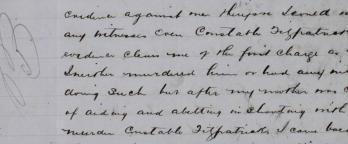 evidence against me therefore I
any witnesses Even Constable Fitzpatrick
evidence clears me of the first charge as
I neither murdered him or had any
doing such but after my mother was
of aiding and abetting in shooting with
murder Constable Fitzpatrick I came back